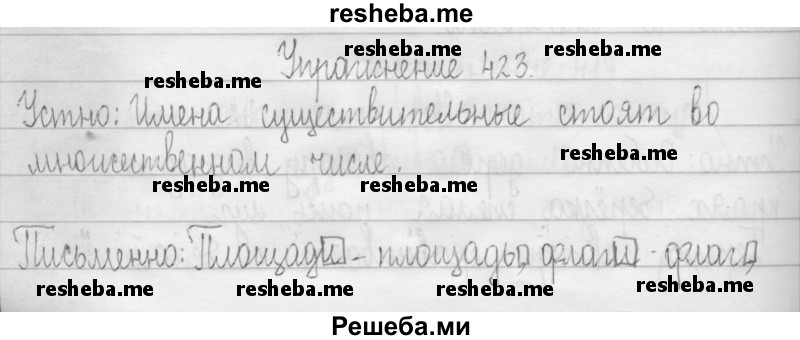 resheba.me
Упражнение 423.
resheba.me
resheba.me
resheba.me
Устно: Имена существительные стоят во
множественном числе.
resheba.me
resheba.me
resheba.me
Письменно: Площади - площадь, флаги - флаг,
resheba.me
resheba.me
resheba.me
resheba.me
Решеба.ми